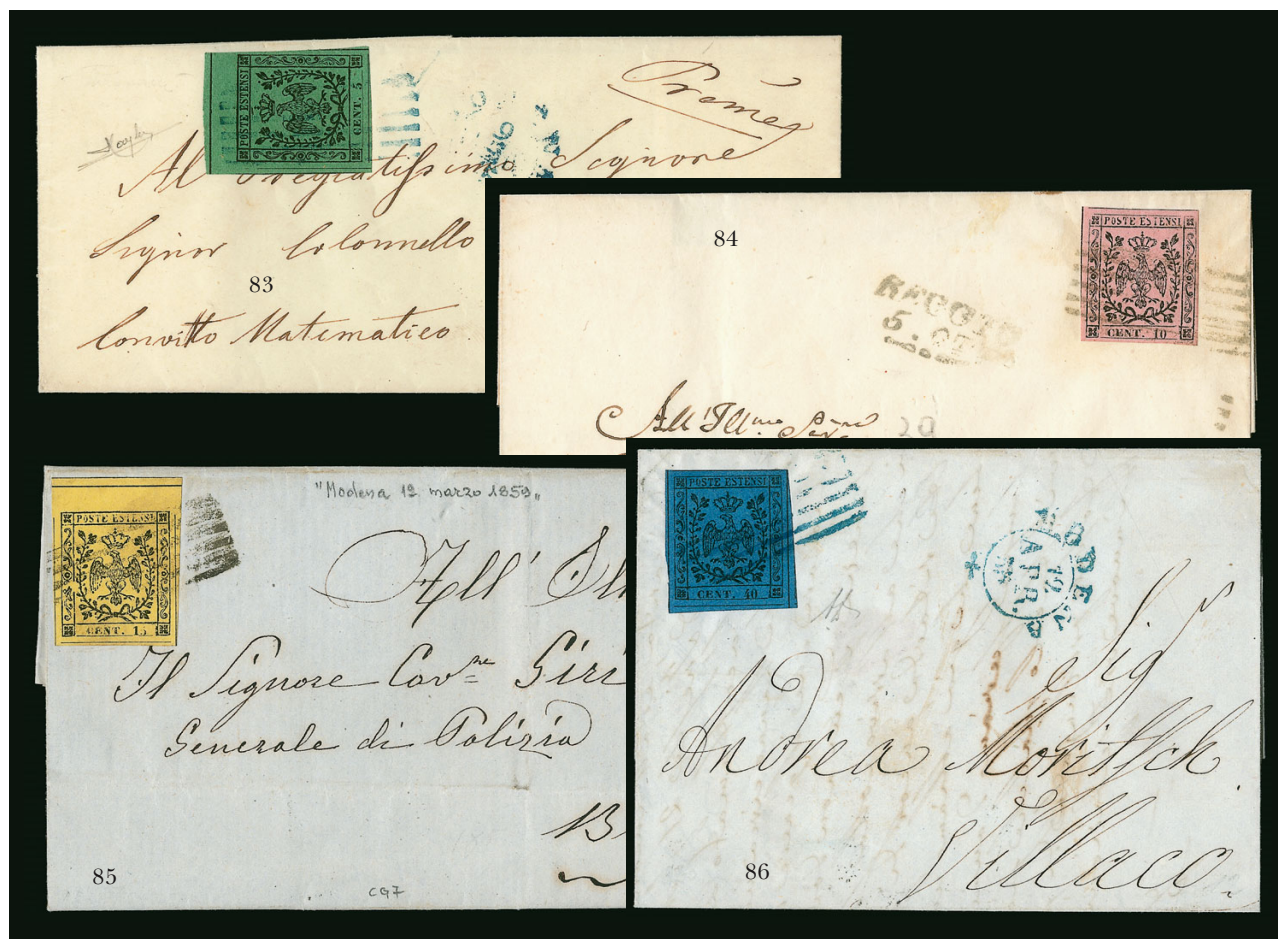 POSTE ESTENSI
CENT. 5
Premey
Al Pregiatissimo Signore
Signor Colonnello
83
Convitto Matematico
84
POSTE ESTENSI
CENT. 10
REGGIO
5. OT
All' Illmo Sig
20
"Modena 12 marzo 1859"
POSTE ESTENSI
CENT. 15
All' Ill
Il Signore Cavre Giri
Generale di Polizia
B
85
CG7
POSTE ESTENSI
CENT. 40
MODENA
12
APR.
Sig
Andrea Moritsch
Villaco
86